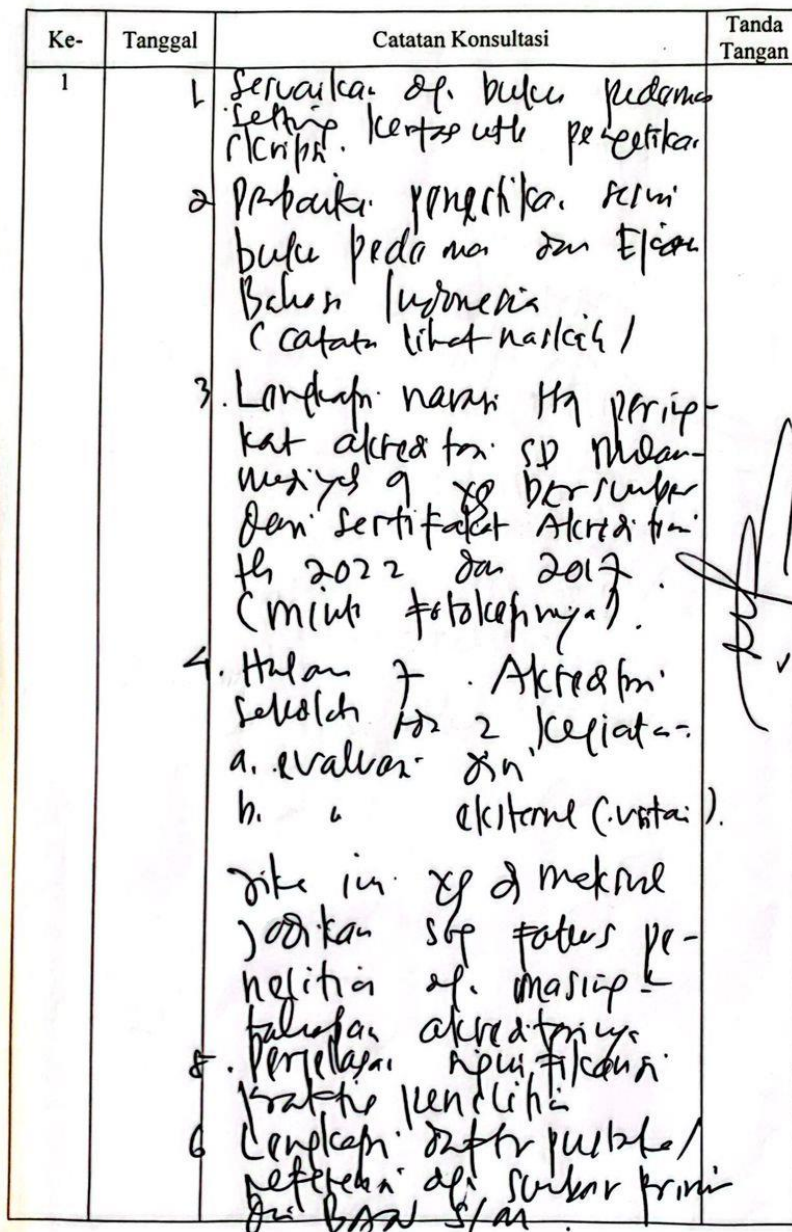 Ke- Tanggal Catatan Konsultasi Tanda Tangan
1
1. Sesuaikan dg. buku pedoman
setting kertas utk pengetikan
skripsi.
2 Perbaiki pengetikan sesuai
buku pedoman dan Ejaan
Bahasa Indonesia
(catatan lihat naskah)
3. Lengkapi narasi ttg pering-
kat akreditasi SD Muham-
madiyah 9 yg bersumber
dari sertifikat Akreditasi
th 2022 dan 2017.
(minta fotokopinya).
4. Halam 7. Akreditasi
sekolah 2 kegiatan
a. evaluasi diri
b. " eksternal (visitasi).
jika ini yg dimaksud
jadikan sbg fokus pe-
nelitian dg. masing2
tahapan akreditasinya
5. Perjelas signifikansi
praktis penelitian
6 Lengkapi daftar pustaka/
referensi dg. sumber primer
dari BAN S/M.